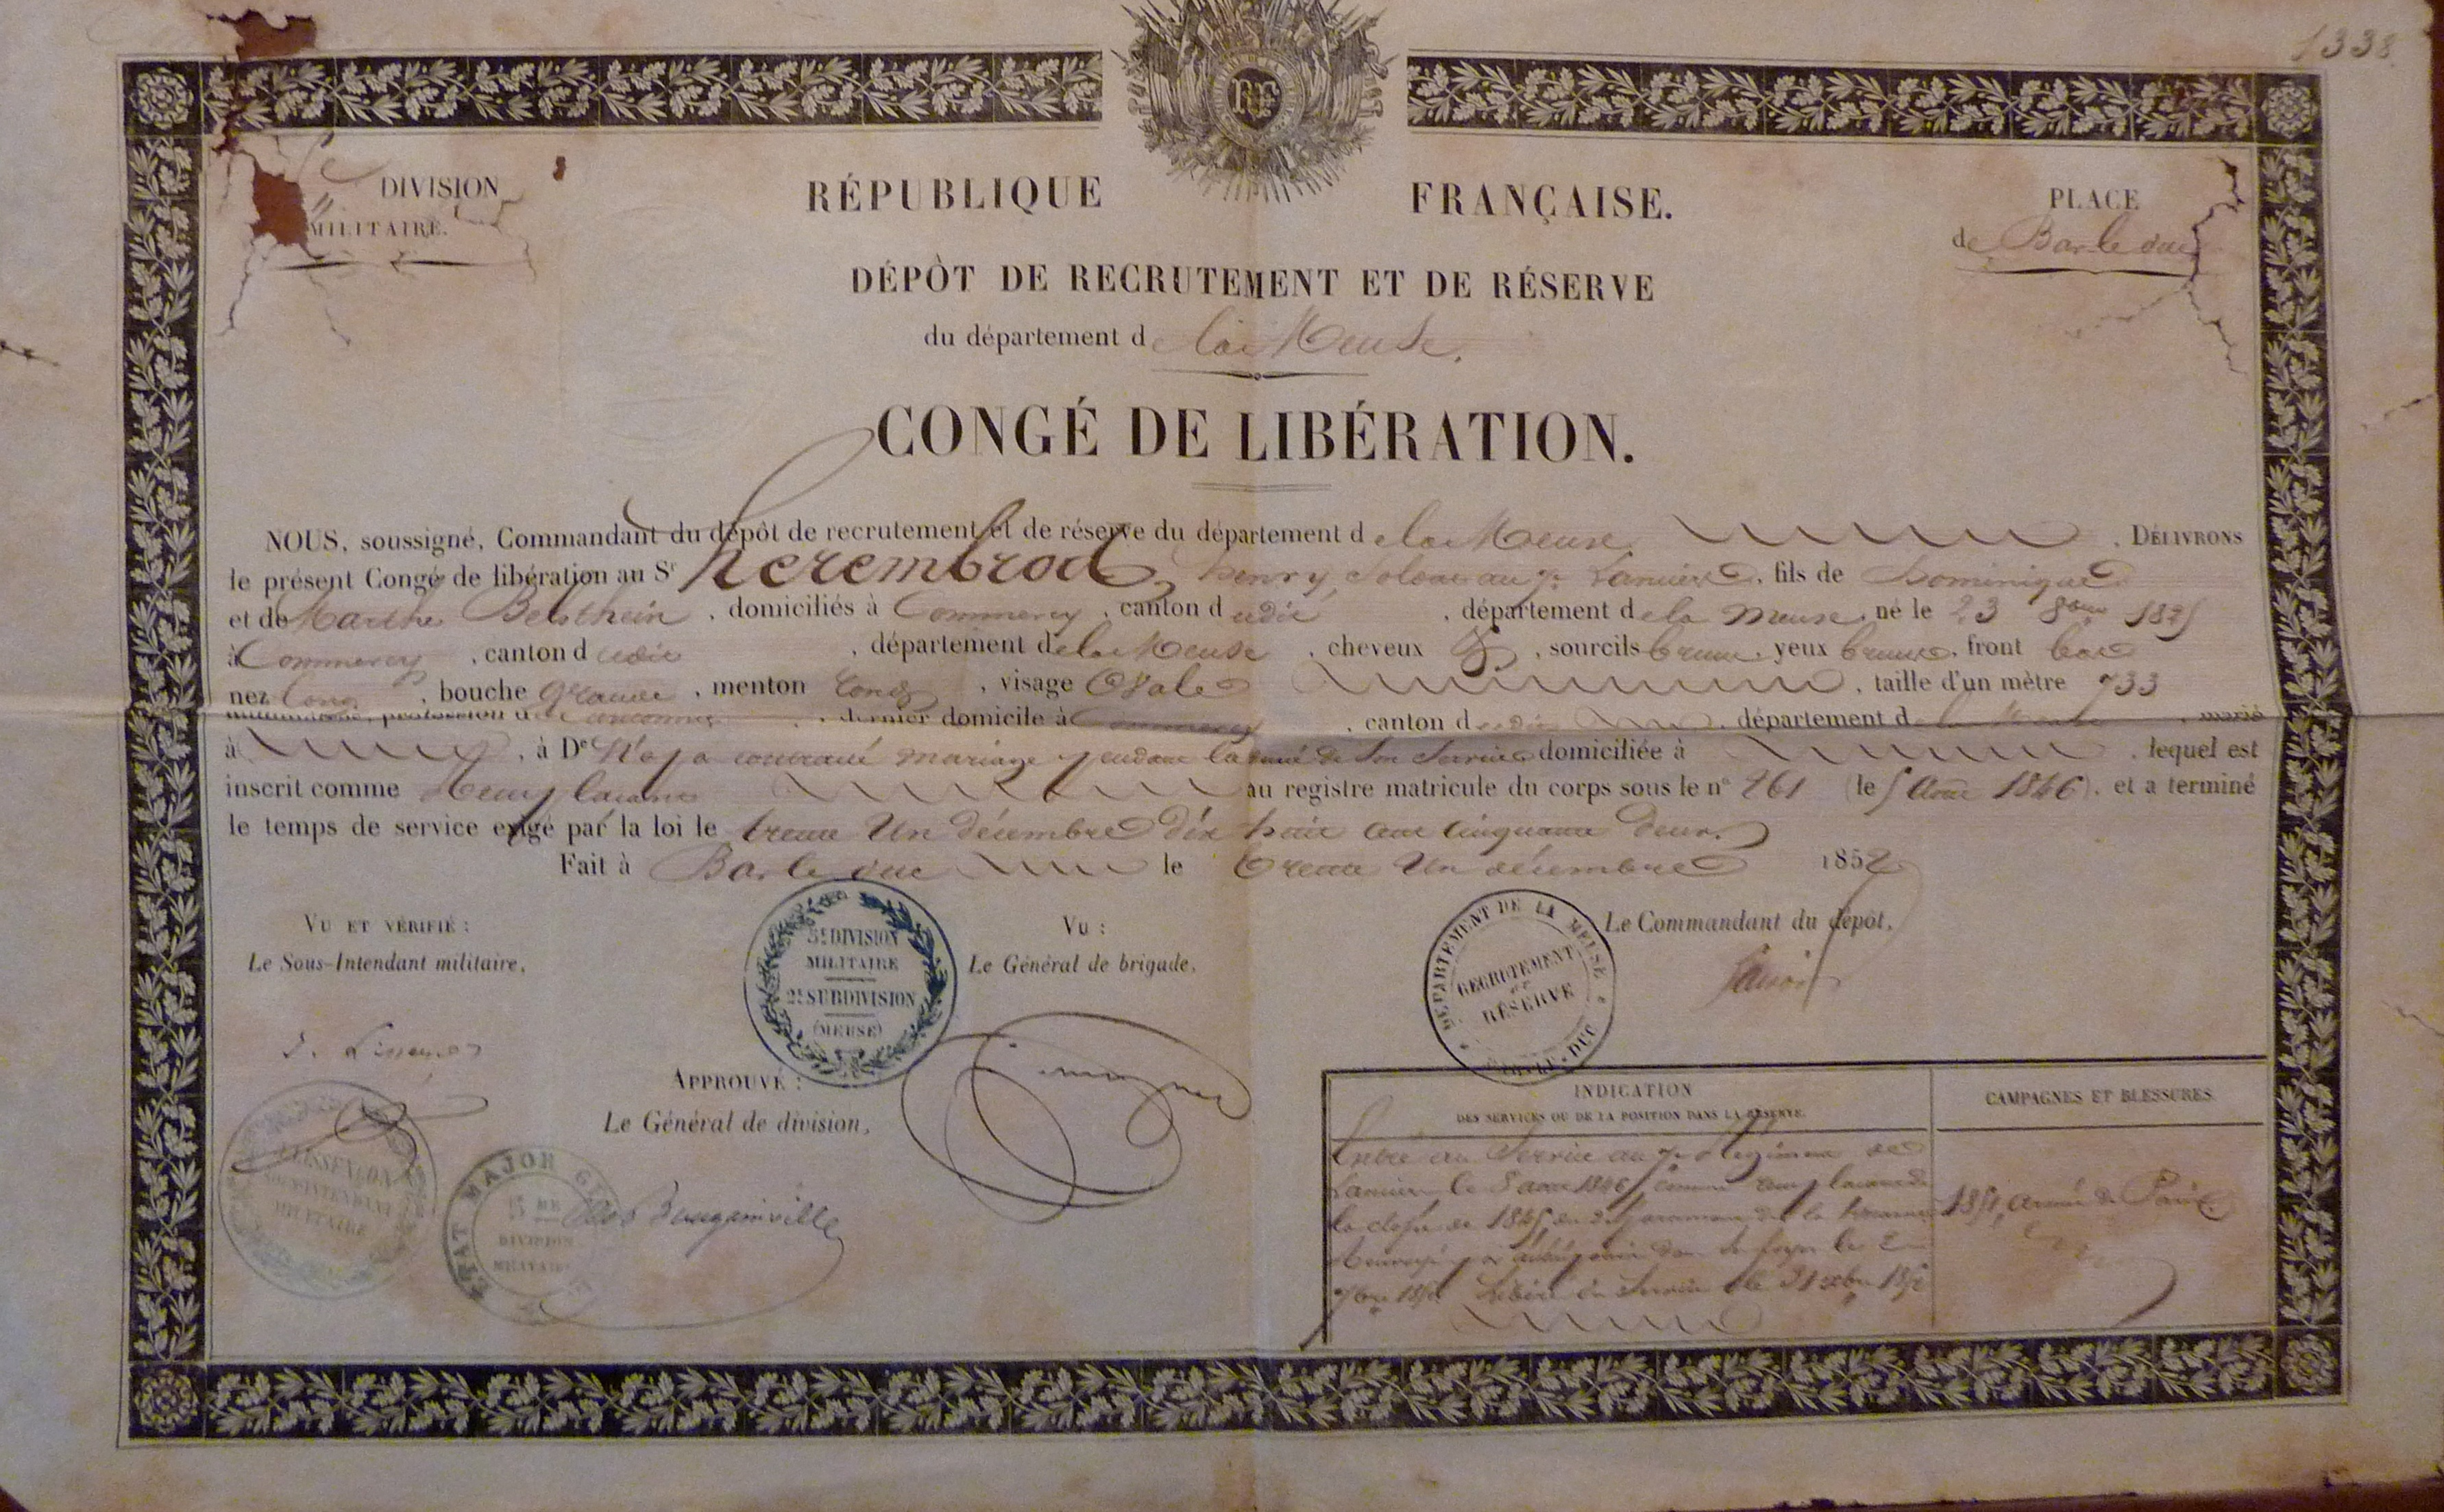 1338
RF
DIVISION
MILITAIRE.
RÉPUBLIQUE FRANÇAISE.
PLACE
de Bar le duc
DÉPÔT DE RECRUTEMENT ET DE RÉSERVE
du département de la Meuse.
CONGÉ DE LIBÉRATION.
NOUS, soussigné, Commandant du dépôt de recrutement et de réserve du département de la Meuse. DÉLIVRONS
le présent Congé de libération au Sr herembrod, henry Soldat au 7e Lanciers, fils de Dominique
et de Marthe, domiciliés à Commercy, canton dudit, département de la Meuse, né le 23 8bre 1825
à Commercy, canton dudit, département de la Meuse, cheveux, sourcils bruns, yeux bruns, front bas
nez long, bouche grande, menton rond, visage Ovale, taille d'un mètre 733
millimètres, profession de, dernier domicile à Commercy, canton dudit, département de la Meuse, marié
à, à De N'a pas contracté mariage pendant la durée de son Service domiciliée à, lequel est
inscrit comme Remplaçant au registre matricule du corps sous le n° 261 (le 5 Août 1846), et a terminé
le temps de service exigé par la loi le trente Un décembre dix huit cent cinquante deux.
Fait à Bar le duc le trente Un décembre 1852
VU ET VÉRIFIÉ :
Le Sous-Intendant militaire,
5e DIVISION
MILITAIRE
2e SUBDIVISION
(MEUSE)
VU :
Le Général de brigade,
DÉPARTEMENT DE LA MEUSE
RECRUTEMENT
ET
RÉSERVE
BAR-LE-DUC
Le Commandant du dépôt,
APPROUVÉ :
Le Général de division,
SOUS INTENDANT
MILITAIRE
ETAT MAJOR
5 ME
DIVISION
MILITAIRE
INDICATION
DES SERVICES OU DE LA POSITION DANS LA RÉSERVE.
CAMPAGNES ET BLESSURES.
Entré au Service au 7e Régiment de
Lanciers le 5 août 1846 comme remplaçant de
la classe de 1845 de la
dans ses foyers le 2
7bre Libéré du Service le 31 xbre 1852
1851, armée de Paris.